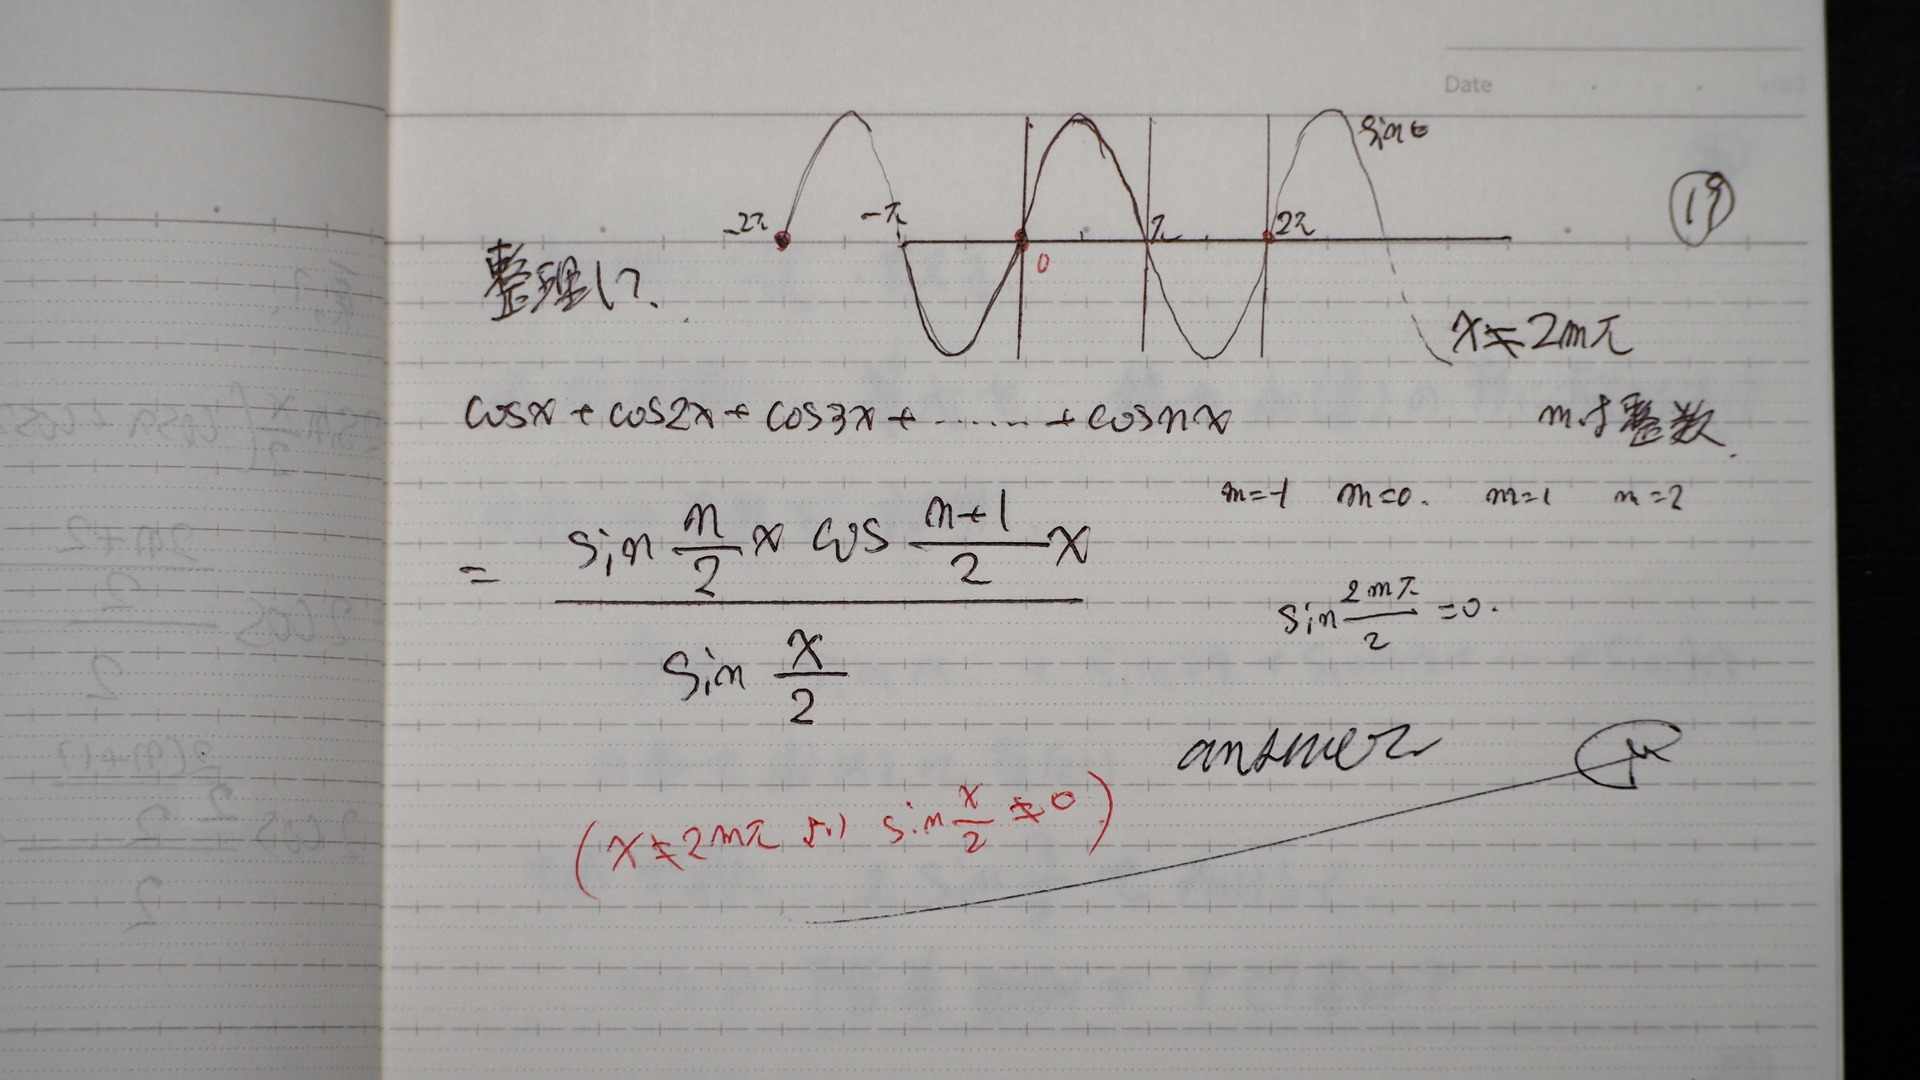 Date
sinθ
⑲
-2π -π 0 π 2π
整理して.
x≠2mπ
cosx + cos2x + cos3x + ...... + cosnx
mは整数.
m=-1 m=0. m=1 m=2
= \frac{sin \frac{n}{2}x cos \frac{n+1}{2}x}{sin \frac{x}{2}}
sin \frac{2mπ}{2} =0.
answer
(x≠2mπ より sin \frac{x}{2} ≠0)